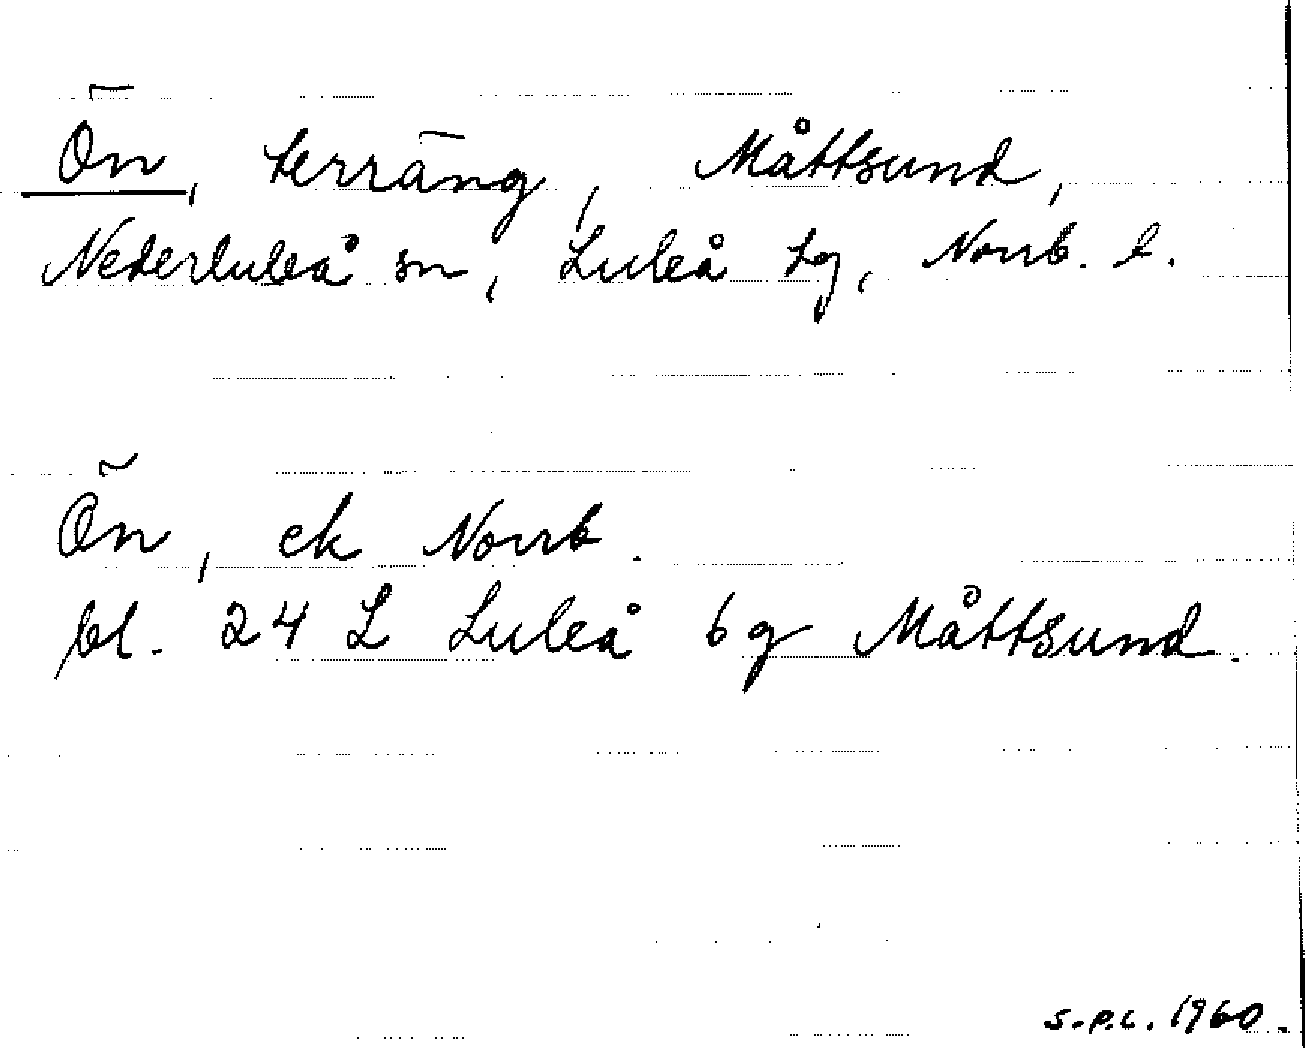 Ön, terräng, Måttsund,
Nederluleå sn, Luleå tg, Norrb. l.
Ön, ek Norrb.
bl. 24 L Luleå 6g Måttsund.
S.P.C. 1960.